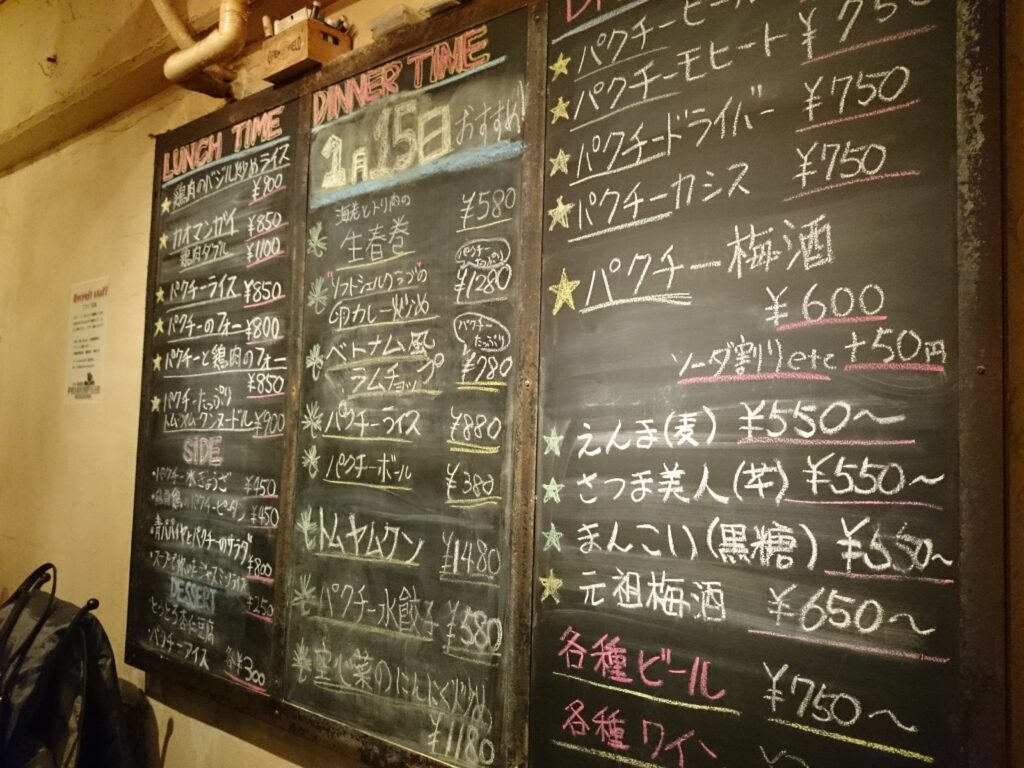 LUNCH TIME
鶏肉のバジル炒めライス
¥800
カオマンガイ ¥850
鶏肉ダブル ¥1100
パクチーライス ¥850
パクチーのフォー ¥800
パクチーと鶏肉のフォー
¥850
パクチーたっぷり
トムヤムクンヌードル ¥900
SIDE
・パクチー水ぎょうざ ¥450
パクチーピータン ¥450
青パパイヤとパクチーのサラダ
¥800
ジャスミンライス
¥250
DESSERT
とろとろ杏仁豆腐
・パクチーアイス 各¥300
Recruit staff
DINNER TIME
1月15日おすすめ!
海老とトリ肉の
生春巻 ¥580
ソフトシェルクラブの
卵カレー炒め
パクチーたっぷり
¥1280
ベトナム風
ラムチョップ
パクチーたっぷり
¥780
パクチーライス ¥880
パクチーボール ¥380
トムヤムクン ¥1480
パクチー水餃子 ¥580
空心菜のにんにく炒め
¥1180
パクチービール ¥750
パクチーモヒート ¥750
パクチードライバー ¥750
パクチーカシス
パクチー梅酒
¥600
ソーダ割りetc +50円
えんま(麦) ¥550〜
さつま美人(芋) ¥550〜
まんこい(黒糖) ¥550〜
元祖梅酒 ¥650〜
各種ビール ¥750〜
各種ワイン